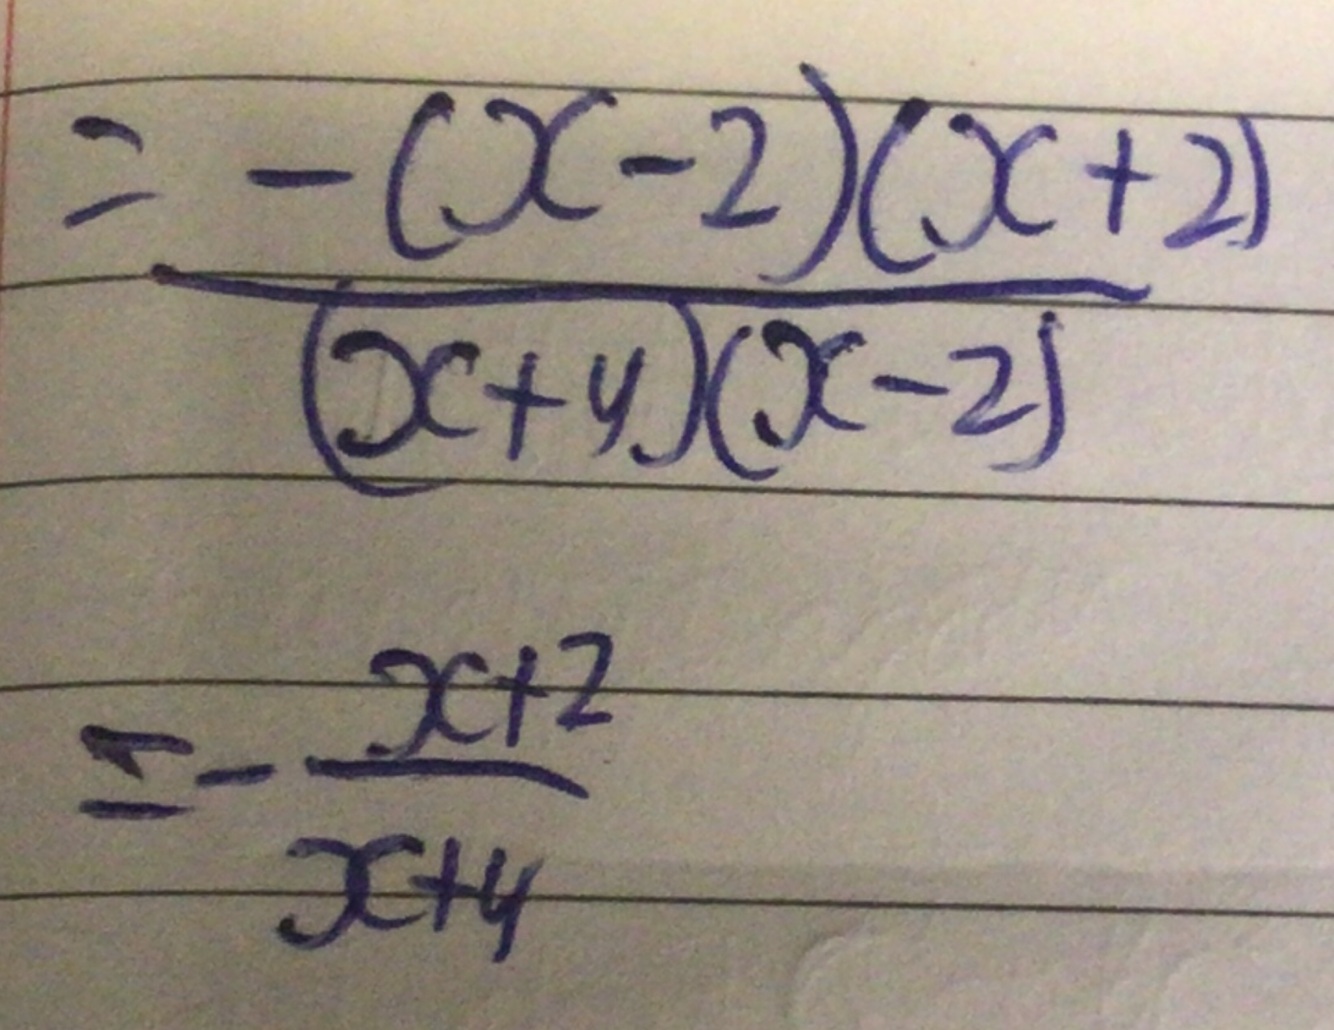 = -(x-2)(x+2)
(x+4)(x-2)
= - x+2
x+4